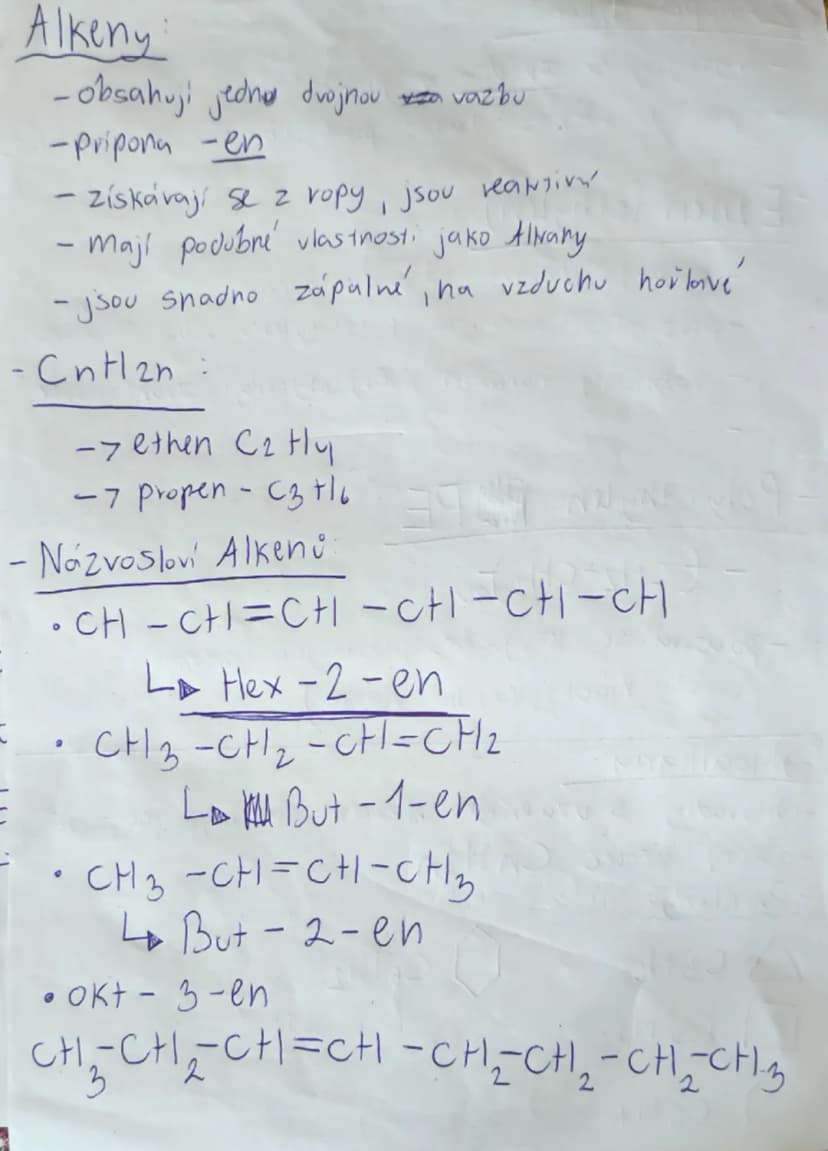 Alkeny:
- obsahují jednu dvojnou vazbu
- přípona -en
- získávají se z ropy, jsou reaktivní
- mají podobné vlastnosti jako Alkany
- jsou snadno zápalné, na vzduchu hořlavé
- CnH2n :
-> ethen C2H4
-> propen - C3H6
- Názvosloví Alkenů
• CH - CH = CH - CH - CH - CH
↳ Hex - 2 - en
• CH3 - CH2 - CH = CH2
↳ But - 1 - en
• CH3 - CH = CH - CH3
↳ But - 2 - en
• okt - 3 - en
CH3 - CH2 - CH = CH - CH2 - CH2 - CH2 - CH3